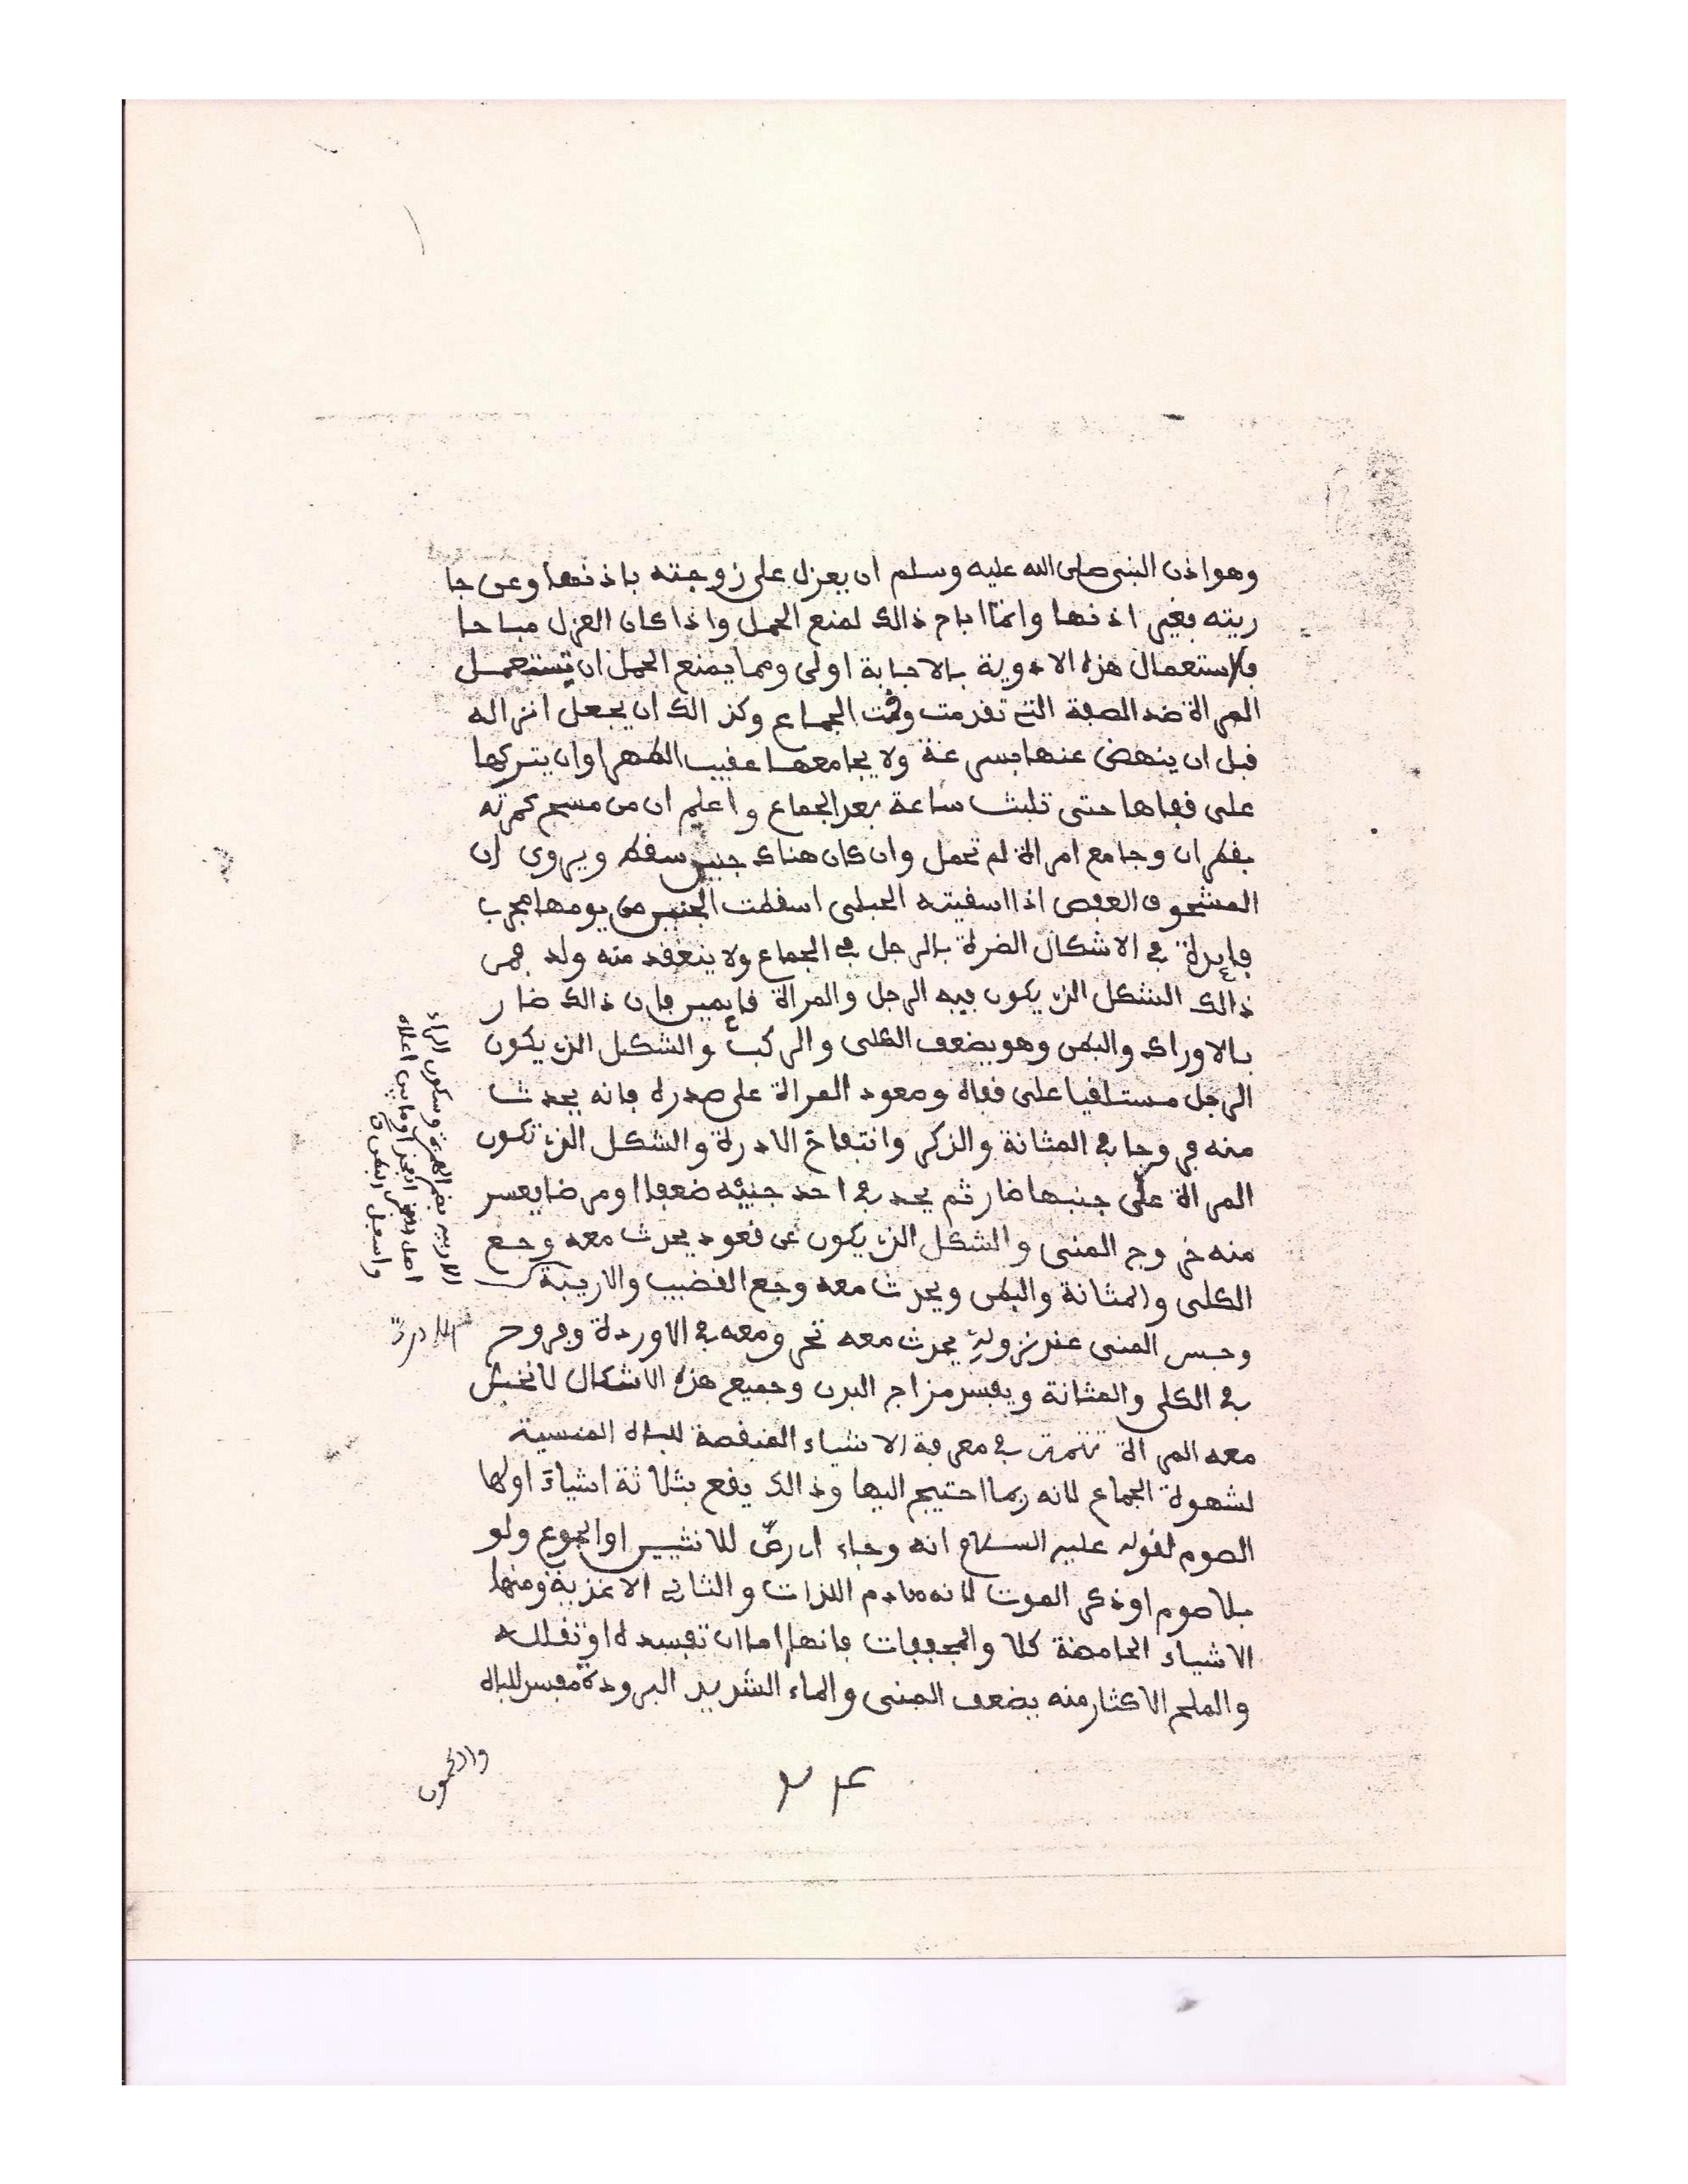 وهو اذن النبي صلى الله عليه وسلم ان يعزل على زوجته باذنها وعن جا
ريته بغير اذنها وانما اباح ذالك لمنع الحمل واذا كان العزل مباحا
فاستعمال هذه الادوية بالاجابة اولى ومما يمنع الحمل ان تستعمل
المراة ضد الصفة التي تقدمت وقت الجماع وكذالك ان يجعل انزاله
قبل ان ينهض عنها بسرعة ولا يجامعها عقيب الطهر اوان يتركها
على قفاها حتى تلبث ساعة بعد الجماع واعلم ان من مسح كمرته
بقطران وجامع امراة لم تحمل وان كان هناك جنين سقط ويروى ان
المسحوق العفص اذا اسقيته الحبلى اسقطت الجنين من يومها مجرب
فايدة في الاشكال الضرة بالرجل في الجماع ولا ينعقد منه ولد فمن
ذالك الشكل الذي يكون فيه الرجل والمراة قايمين فان ذالك ضار
بالاوراك والبطن وهو يضعف الكلى والركب والشكل الذي يكون
الرجل مستلقيا على قفاه وصعود المراة على صدره فانه يحدث
منه قروحا في المثانة والذكر وانتفاخ الادرة والشكل الذي تكون
المراة على جنبها ضار ثم يحد في احد جنبيه ضعفا او مرضا يعسر
منه خروج المنى والشكل الذي يكون عن قعود يحدث معه وجع
الكلى والمثانة والبطن ويحدث معه وجع القضيب والاربية
وحبس المنى عند نزوله يحدث معه في الاوردة وقروح
في الكلى والمثانة ويفسد مزاج البدن وجميع هذه الاشكال لا تخبل
معه المراة تتمة في معرفة الاشياء المنقصة للباه المنسية
لشهوة الجماع لانه ربما احتيج اليها وذالك يقع بثلاثة اشياء اولها
الصوم لقوله عليه السلام انه وجاء اي رض للانثيين او الجوع ولو
بلا صوم او ذكر الموت لانه هادم اللذات والثاني الاغذية ومنها
الاشياء الحامضة كلا والمجففات فانها اما ان تفسده او تقلله
والملح الاكثار منه يضعف المنى والماء الشديد البرودة مفسد للباه
والكمون
الاربية بضم الهمزة وسكون الراء
اصل الفخذ او ما بين اعلاه
واسفل البطن ق
الادرة
٢٤